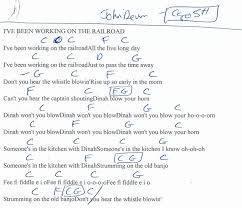 John Deere - CGOSH
I'VE BEEN WORKING ON THE RAILROAD
C C F C
I've been working on the railroadAll the live long day
C D G
I've been working on the railroadJust to pass the time away
G C F C
Don't you hear the whistle blowin'Rise up so early in the morn
F C F G C
Can't you hear the captain shoutingDinah blow your horn
C F G C
Dinah won't you blowDinah won't you blowDinah won't you blow your ho-o-o-orn
C F G C
Dinah won't you blowDinah won't you blowDinah won't you blow your horn
C C G
Someone's in the kitchen with DinahSomeone's in the kitchen I know oh-oh-oh
C F CG C
Someone's in the kitchen with DinahStrumming on the old banjo
C C G
Fee fi fiddle e i oFee fi fiddle e i o-o-o-oFee fi fiddle e i o
F CG C
Strumming on the old banjoDon't you hear the whistle blowin'